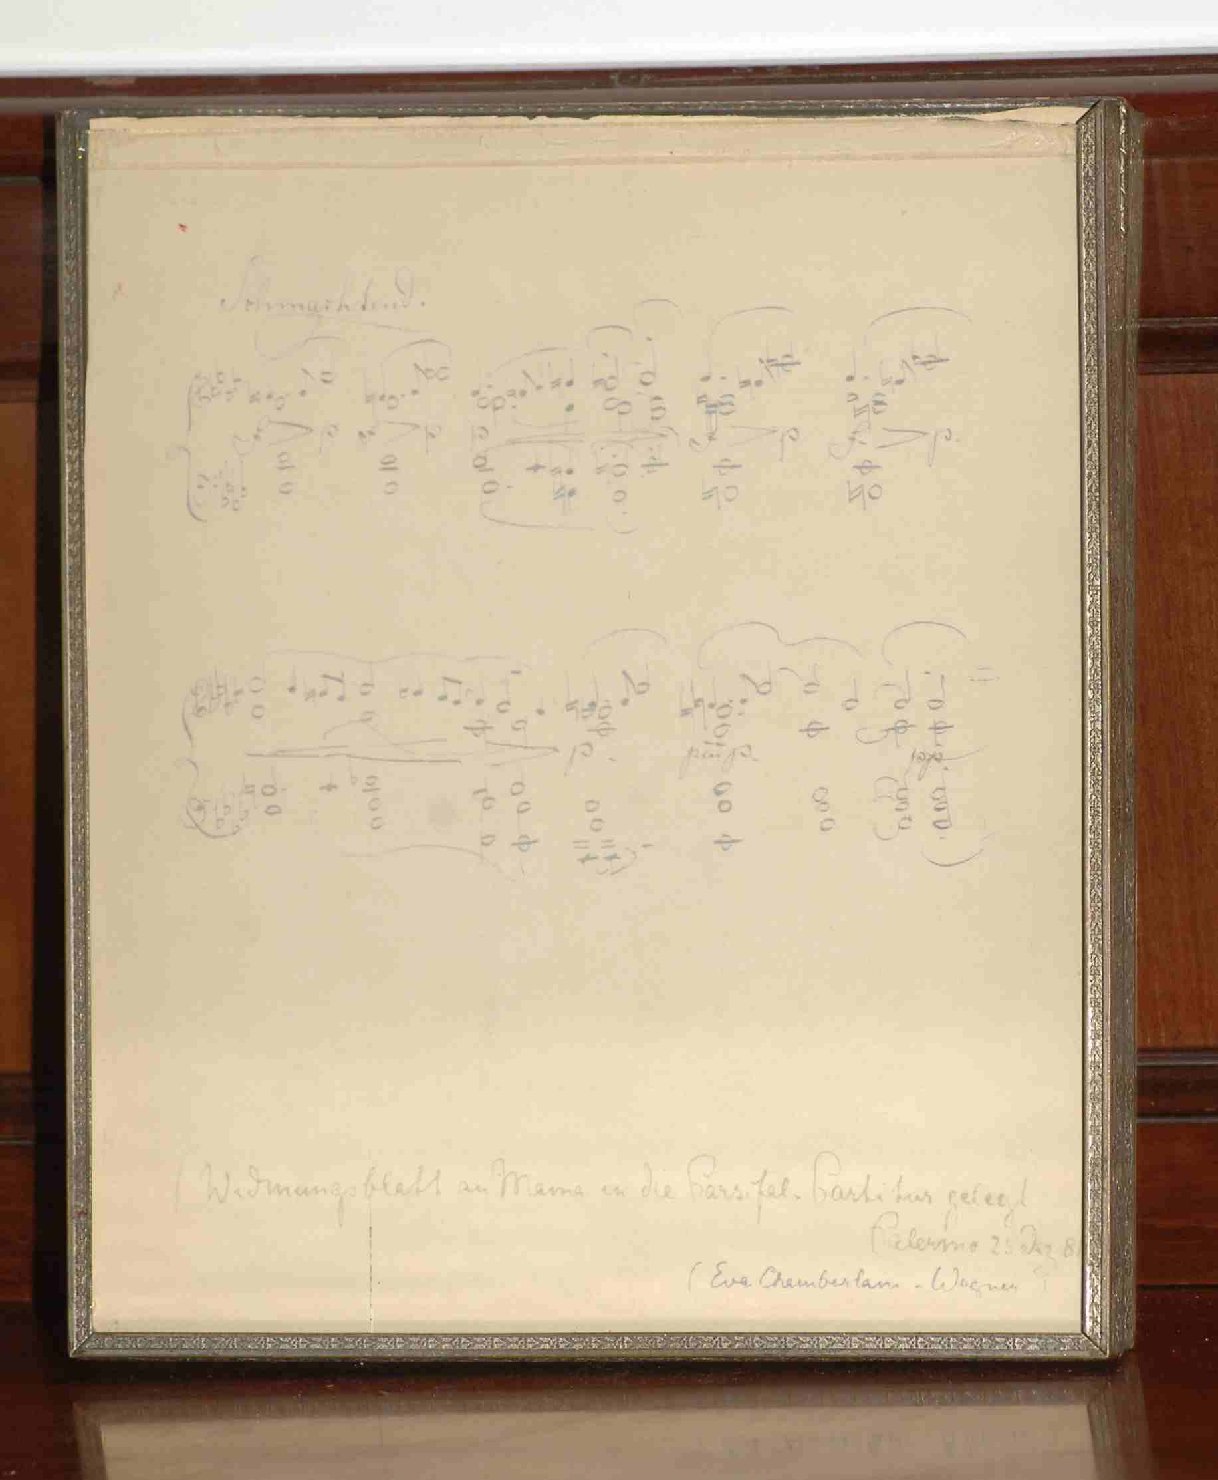 Schmachtend.
(Widmungsblatt an Mama in die Parsifal-Partitur gelegt
Palermo 25 Dez 81
(Eva Chamberlain-Wagner)